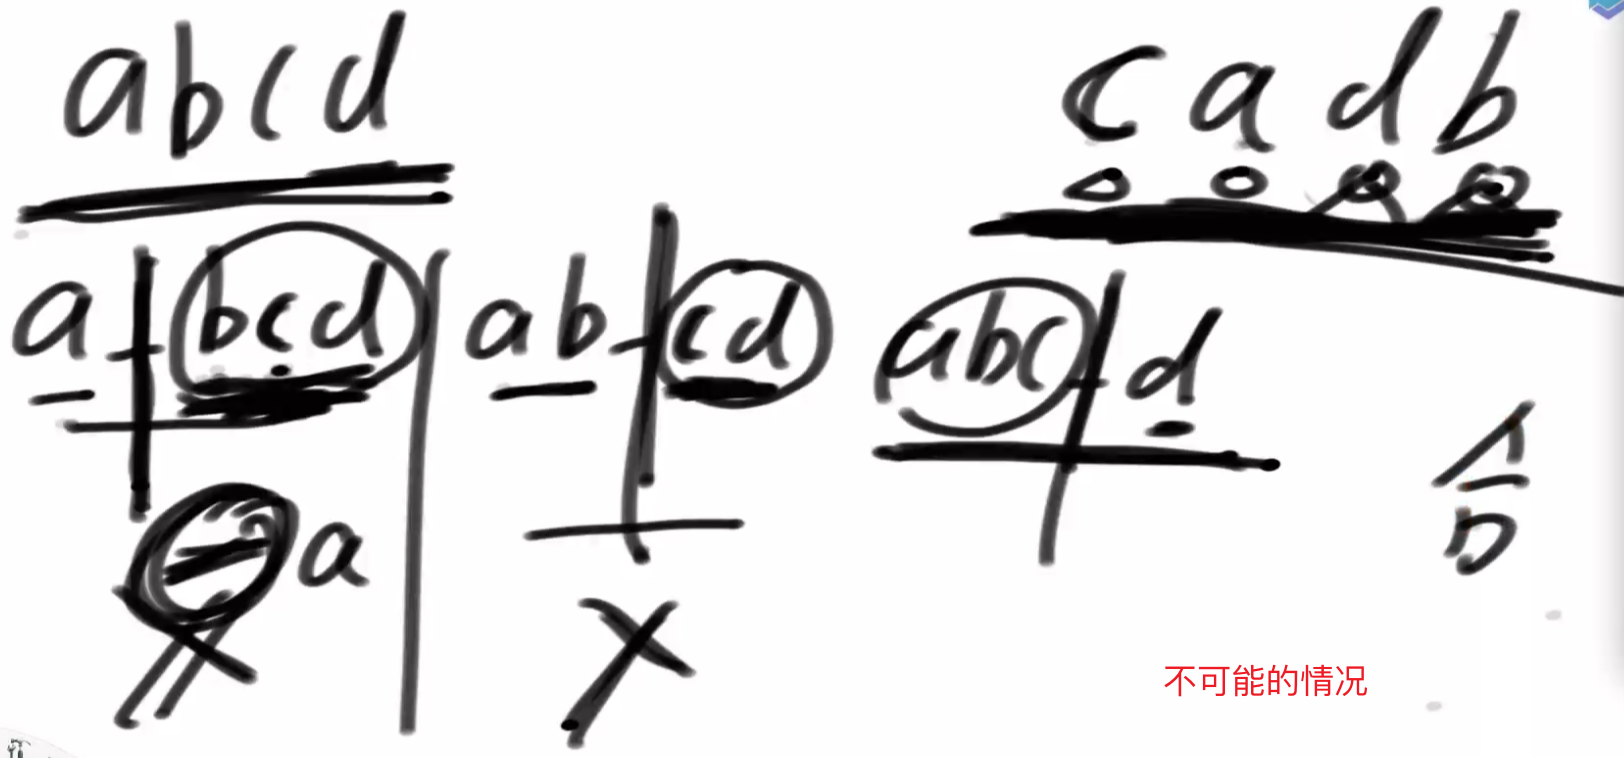 abcd
cadb
a bcd
ab cd
abc d
a
不可能的情况